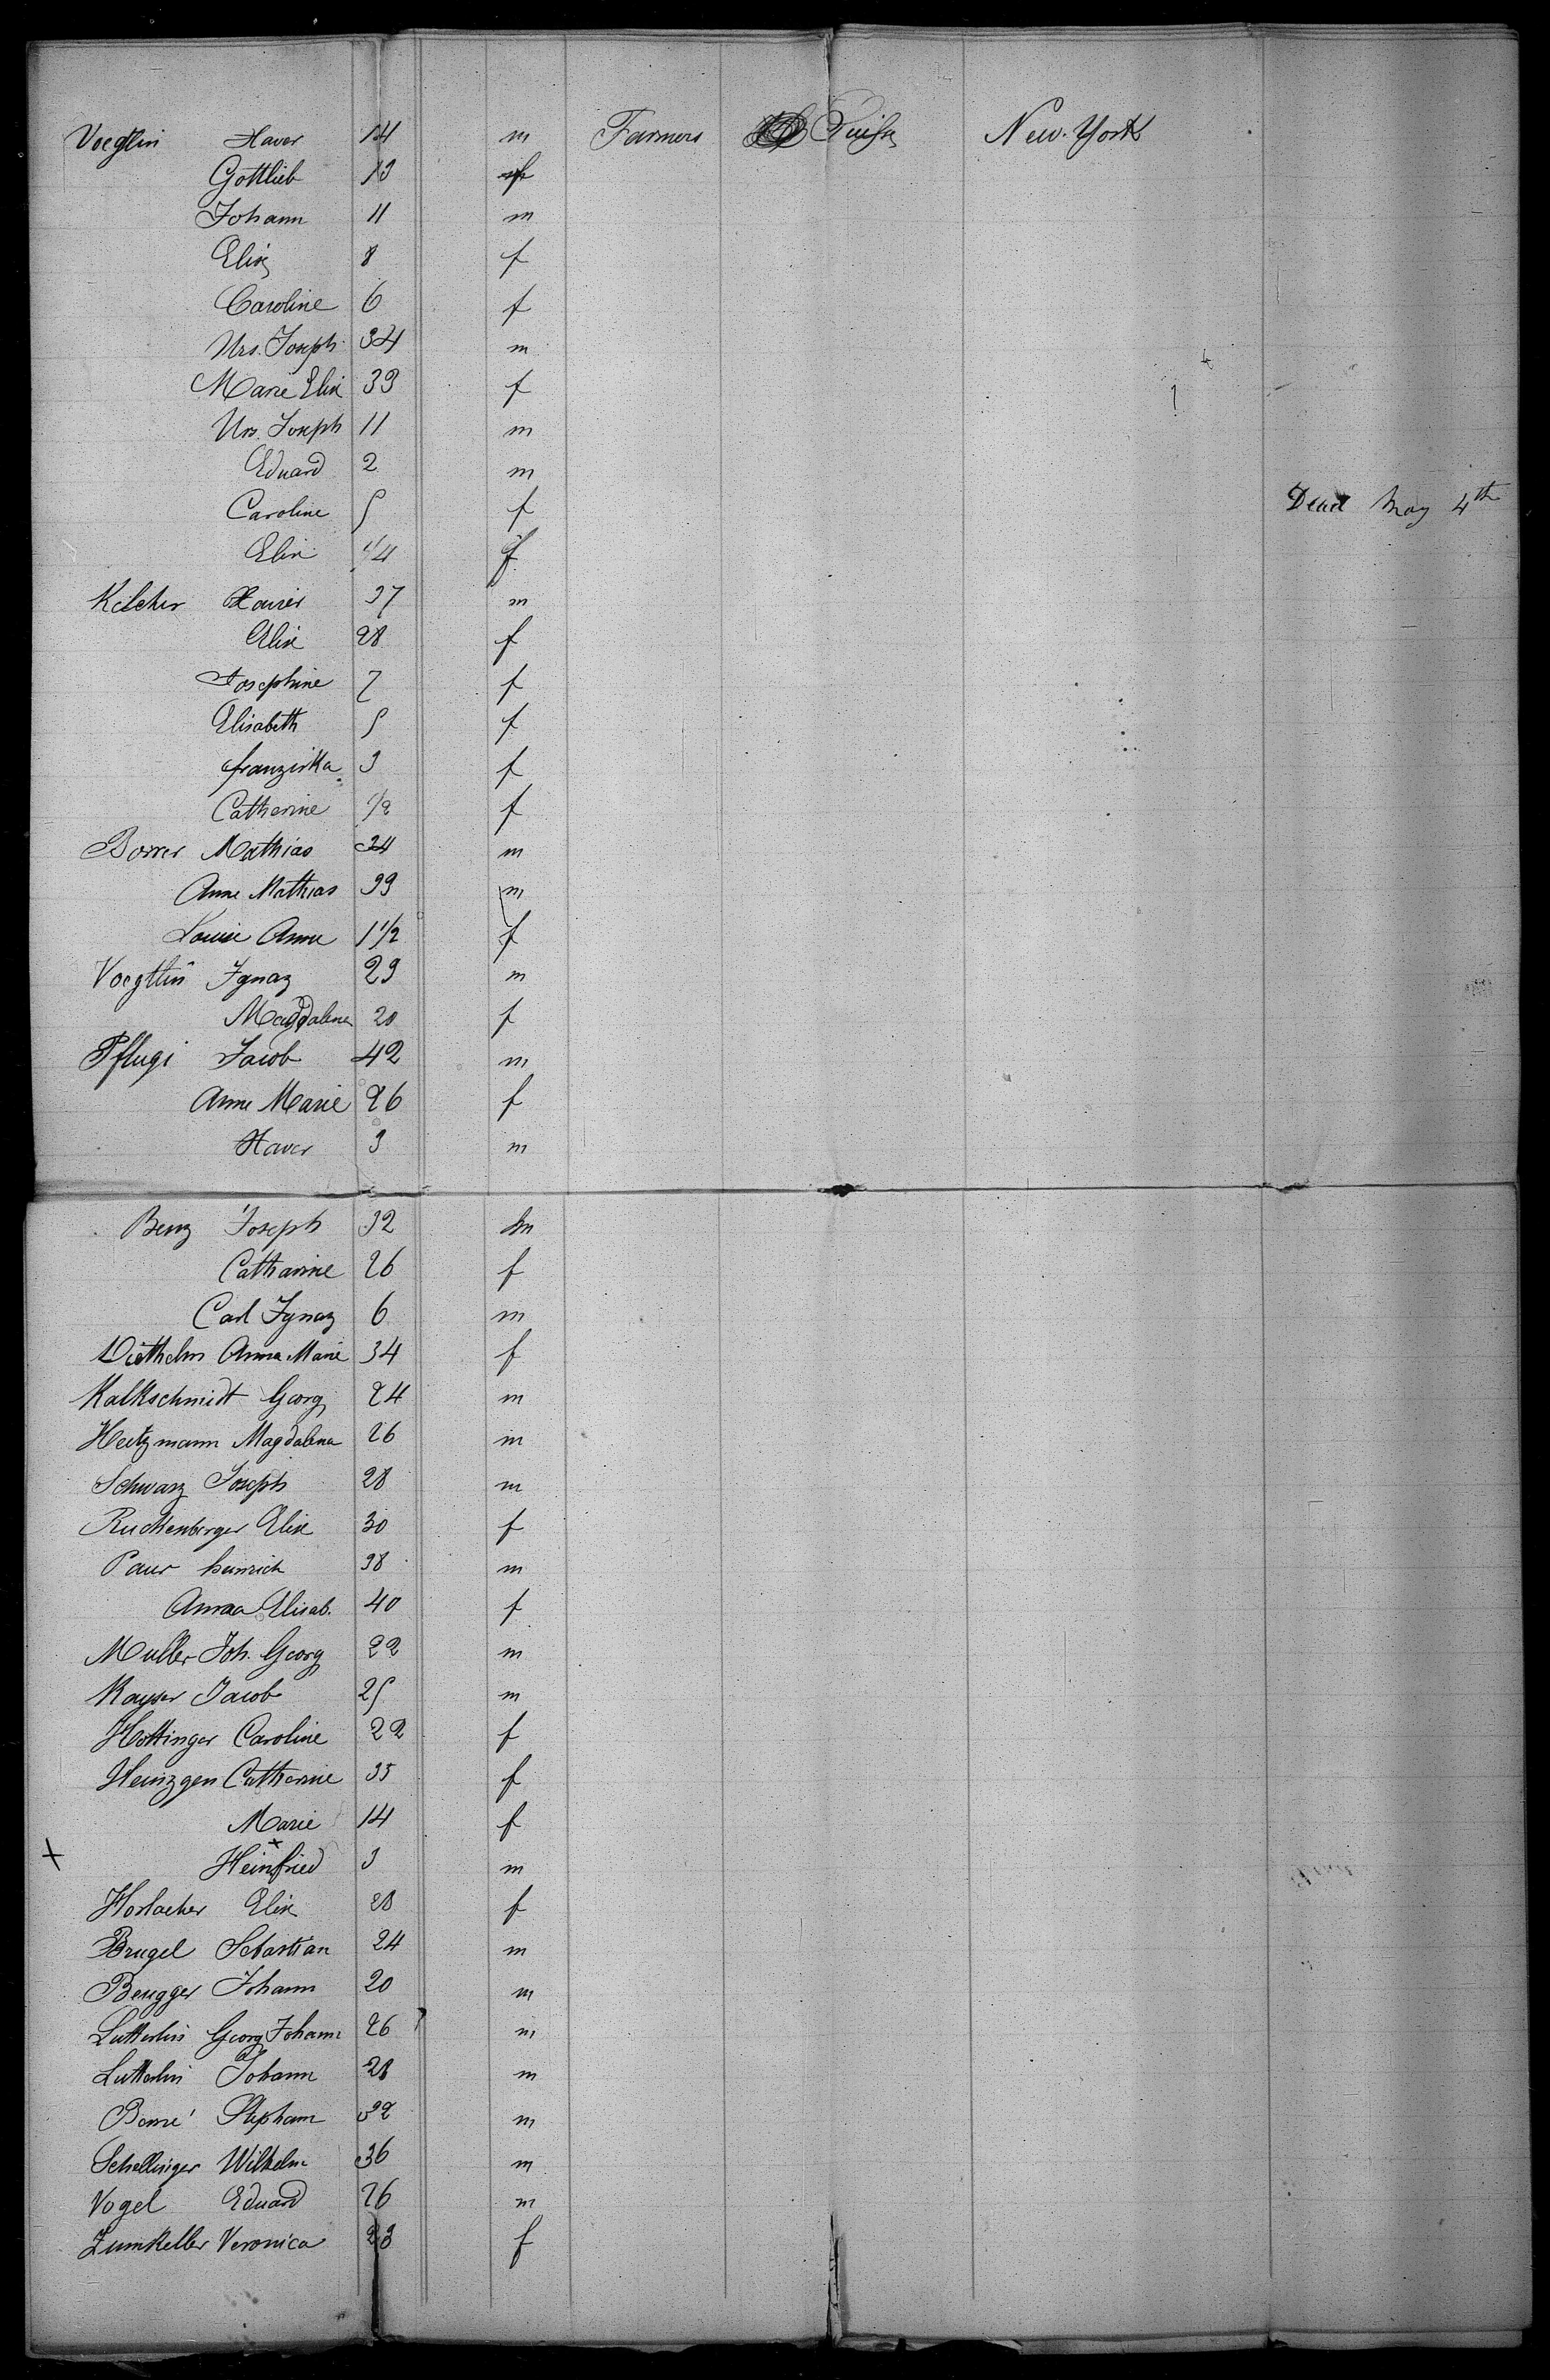 Voegtlin Xaver 14 m Farmers Suisse New-York
Gottlieb 13 f
Johann 11 m
Elise 8 f
Caroline 6 f
Urs. Joseph 34 m
Marie Elise 33 f
Urs. Joseph 11 m
Eduard 2 m
Caroline 5 f Dead May 4th
Elise 1/4 f
Kilcher Xavier 37 m
Elise 28 f
Josephine 7 f
Elisabeth 5 f
franziska 3 f
Catherine 1/2 f
Borrer Mathias 34 m
Anne Mathias 33 m
Louise Anne 1 1/2 f
Voegtlin Ignaz 29 m
Magdalena 20 f
Pflugi Jacob 42 m
Anne Marie 26 f
Xaver 3 m
Benz Joseph 32 m
Catharine 26 f
Carl Ignaz 6 m
Diethelm Anna Marie 34 f
Kalkschmidt Georg 24 m
Heitzmann Magdalena 26 m
Schwarz Joseph 28 m
Ruckenberger Elise 30 f
Paur heinrich 38 m
Anna Elisab. 40 f
Muller Joh. Georg 22 m
Kayser Jacob 25 m
Hottinger Caroline 22 f
Heinzgen Catherine 35 f
Marie 14 f
x Heinfried x 3 m
Horlacher Elise 28 f
Brugel Sebastian 24 m
Beugger Johann 20 m
Lutterlin Georg Johann 26 m
Lutterlin Johann 28 m
Borné Stepham 32 m
Schellinger Wilhelm 36 m
Vogel Eduard 26 m
Zumkeller Veronica 23 f